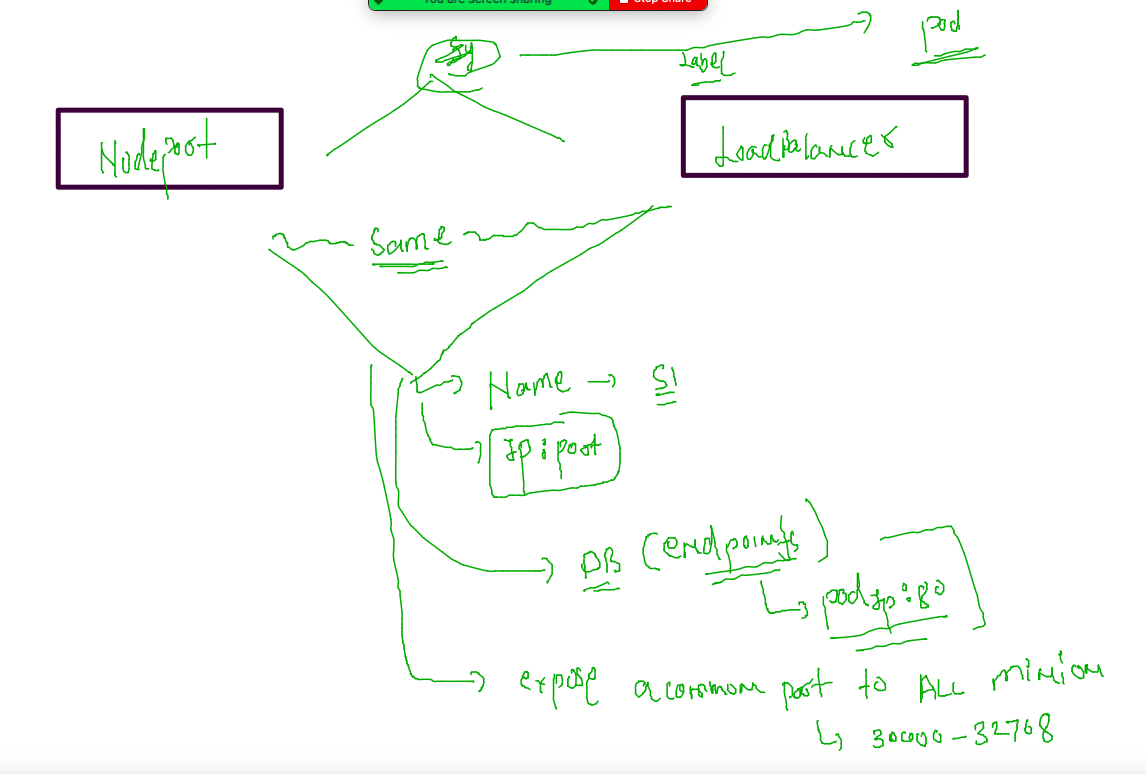 You are screen sharing Stop Share
pod
Label
Nodeport
LoadBalancer
Same
Name → S1
Ip:port
DB (endpoints)
podIp:80
expose a common port to ALL minion
30000-32768